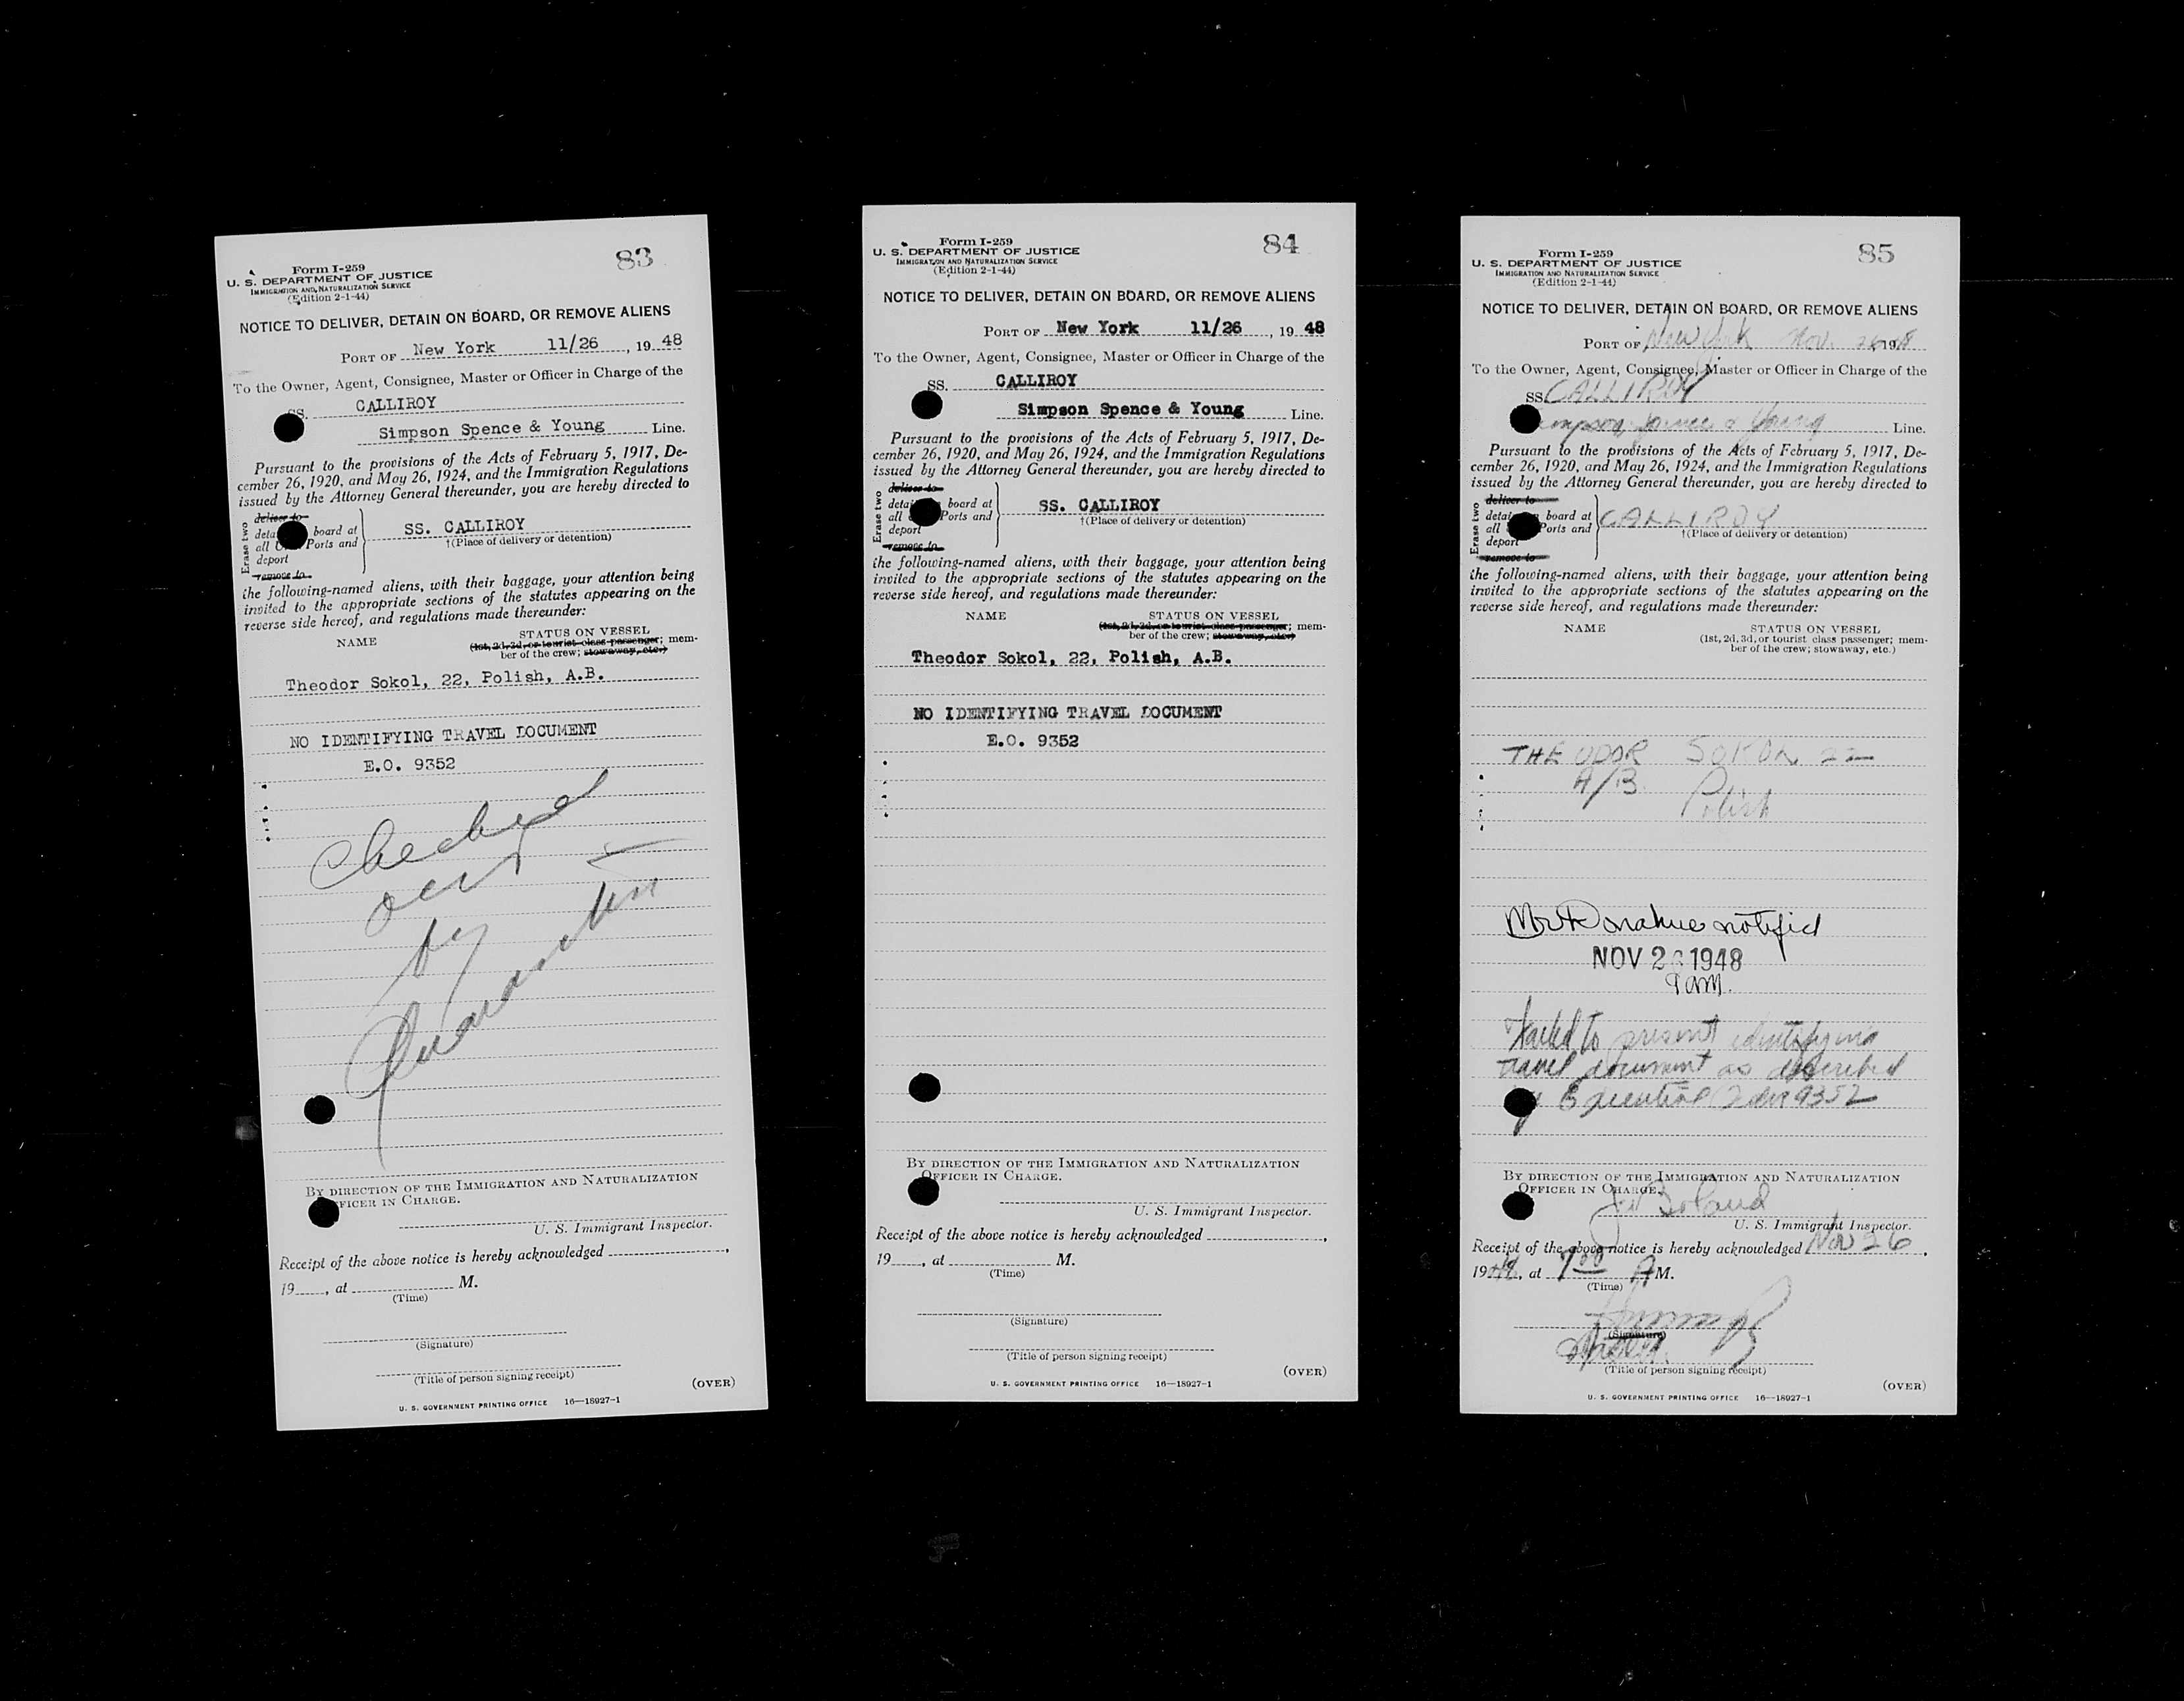 83
Form I-259
U. S. DEPARTMENT OF JUSTICE
IMMIGRATION AND NATURALIZATION SERVICE
(Edition 2-1-44)
NOTICE TO DELIVER, DETAIN ON BOARD, OR REMOVE ALIENS
PORT OF New York 11/26, 19 48
To the Owner, Agent, Consignee, Master or Officer in Charge of the
SS. CALLIROY
Simpson Spence & Young Line.
Pursuant to the provisions of the Acts of February 5, 1917, De-
cember 26, 1920, and May 26, 1924, and the Immigration Regulations
issued by the Attorney General thereunder, you are hereby directed to
Erase two
deliver to
board at
all Ports and
deport
remove to
SS. CALLIROY
†(Place of delivery or detention)
the following-named aliens, with their baggage, your attention being
invited to the appropriate sections of the statutes appearing on the
reverse side hereof, and regulations made thereunder:
NAME STATUS ON VESSEL
(1st, 2d, 3d, or tourist class passenger; mem-
ber of the crew; stowaway, etc.)
Theodor Sokol, 22, Polish, A.B.
NO IDENTIFYING TRAVEL DOCUMENT
E.O. 9352
Checked
out
by
BY DIRECTION OF THE IMMIGRATION AND NATURALIZATION
OFFICER IN CHARGE.
U. S. Immigrant Inspector.
Receipt of the above notice is hereby acknowledged
19, at M.
(Time)
(Signature)
(Title of person signing receipt)
(OVER)
U. S. GOVERNMENT PRINTING OFFICE 16—18927-1
84
Form I-259
U. S. DEPARTMENT OF JUSTICE
IMMIGRATION AND NATURALIZATION SERVICE
(Edition 2-1-44)
NOTICE TO DELIVER, DETAIN ON BOARD, OR REMOVE ALIENS
PORT OF New York 11/26, 19 48
To the Owner, Agent, Consignee, Master or Officer in Charge of the
SS. CALLIROY
Simpson Spence & Young Line.
Pursuant to the provisions of the Acts of February 5, 1917, De-
cember 26, 1920, and May 26, 1924, and the Immigration Regulations
issued by the Attorney General thereunder, you are hereby directed to
Erase two
deliver to
board at
all Ports and
deport
remove to
SS. CALLIROY
†(Place of delivery or detention)
the following-named aliens, with their baggage, your attention being
invited to the appropriate sections of the statutes appearing on the
reverse side hereof, and regulations made thereunder:
NAME STATUS ON VESSEL
(1st, 2d, 3d, or tourist class passenger; mem-
ber of the crew; stowaway, etc.)
Theodor Sokol, 22, Polish, A.B.
NO IDENTIFYING TRAVEL DOCUMENT
E.O. 9352
BY DIRECTION OF THE IMMIGRATION AND NATURALIZATION
OFFICER IN CHARGE.
U. S. Immigrant Inspector.
Receipt of the above notice is hereby acknowledged
19, at M.
(Time)
(Signature)
(Title of person signing receipt)
(OVER)
U. S. GOVERNMENT PRINTING OFFICE 16—18927-1
85
Form I-259
U. S. DEPARTMENT OF JUSTICE
IMMIGRATION AND NATURALIZATION SERVICE
(Edition 2-1-44)
NOTICE TO DELIVER, DETAIN ON BOARD, OR REMOVE ALIENS
PORT OF New York Nov. 26 1948
To the Owner, Agent, Consignee, Master or Officer in Charge of the
SS CALLIROY
Simpson Spence & Young Line.
Pursuant to the provisions of the Acts of February 5, 1917, De-
cember 26, 1920, and May 26, 1924, and the Immigration Regulations
issued by the Attorney General thereunder, you are hereby directed to
Erase two
deliver to
board at
all Ports and
deport
remove to
CALLIROY
†(Place of delivery or detention)
the following-named aliens, with their baggage, your attention being
invited to the appropriate sections of the statutes appearing on the
reverse side hereof, and regulations made thereunder:
NAME STATUS ON VESSEL
(1st, 2d, 3d, or tourist class passenger; mem-
ber of the crew; stowaway, etc.)
THEODOR SOKOL 22
A/B Polish
Mr Donahue notified
NOV 26 1948
9 am.
Failed to present identifying
travel document as described
by Executive Order 9352
BY DIRECTION OF THE IMMIGRATION AND NATURALIZATION
OFFICER IN CHARGE.
Boland
U. S. Immigrant Inspector.
Receipt of the above notice is hereby acknowledged Nov 26,
1948, at 7 00 A M.
(Time)
(Signature)
(Title of person signing receipt)
(OVER)
U. S. GOVERNMENT PRINTING OFFICE 16—18927-1